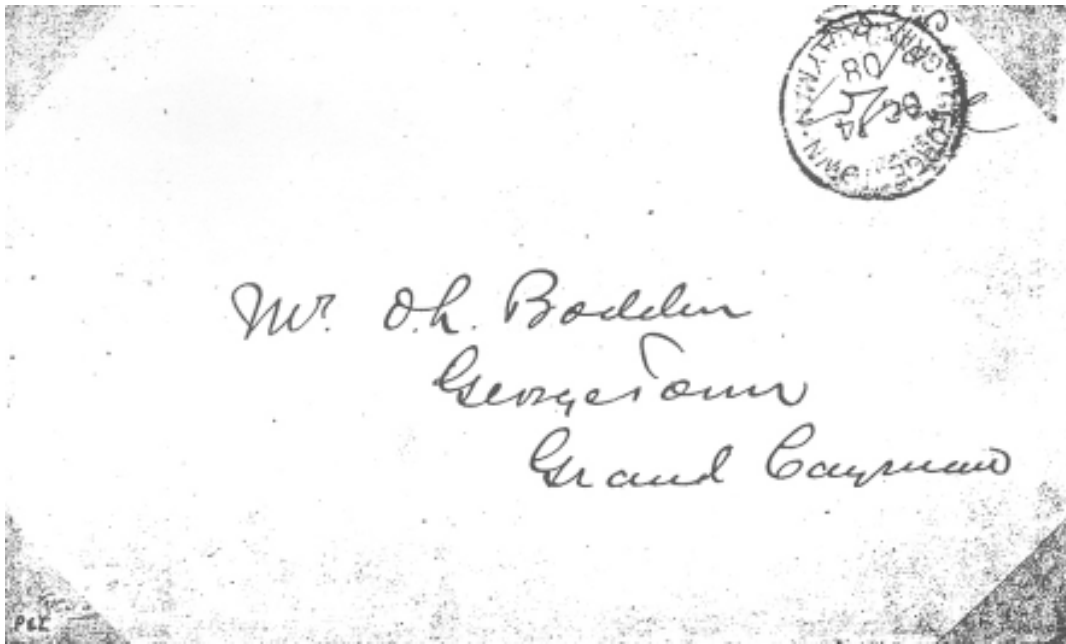 GEORGE TOWN
GRAND CAYMAN
OC
4
08
Mr. O.L. Bodden
Georgetown
Grand Cayman